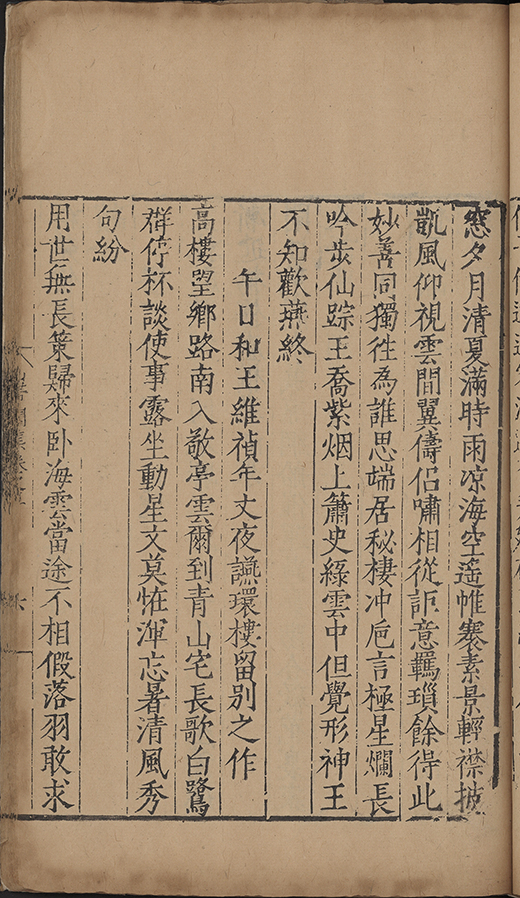 窓夕月清夏滿時雨凉海空遙帷褰素景輕襟披
凱風仰視雲間翼儔侣嘯相從詎意羈瑣餘得此
妙善同獨徃為誰思端居秘棲冲巵言極星爛長
吟步仙踪王喬紫烟上簫史綠雲中但覺形神王
不知歡燕終
午日和王維楨年丈夜讌環樓留別之作
高樓望鄉路南入敬亭雲爾到青山宅長歌白鷺
群停杯談使事露坐動星文莫恠渾忘暑清風秀
句紛
用世無長策歸來卧海雲當途不相假落羽敢求